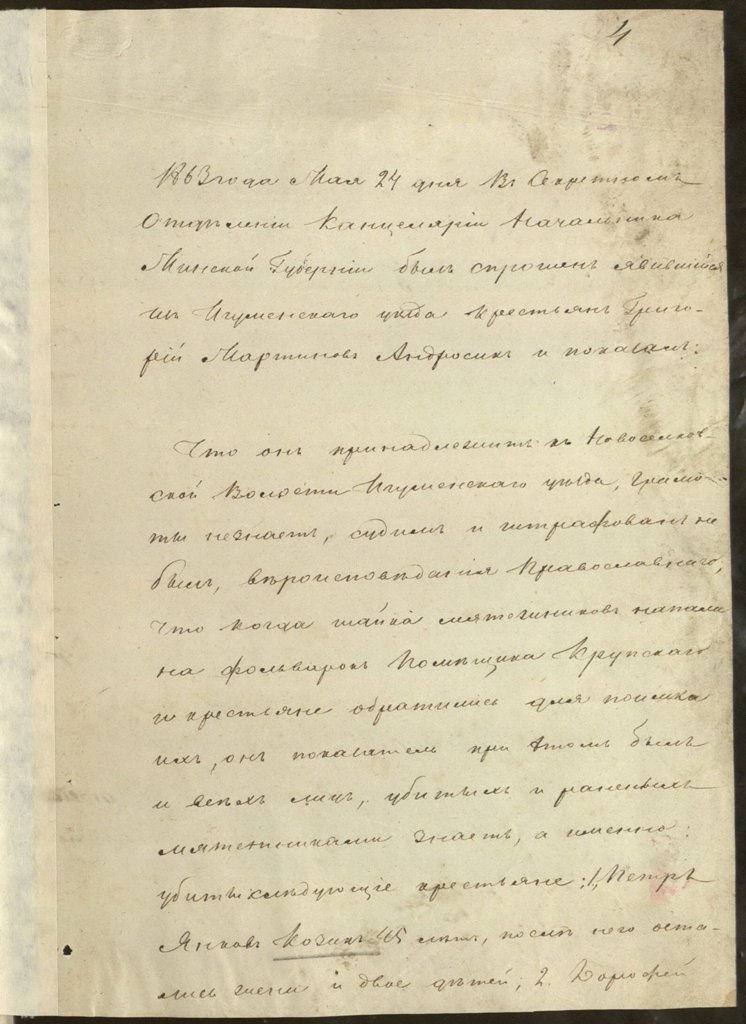 4
1863 года Мая 24 дня Въ Секретномъ
Отдѣленіи Канцеляріи Начальника
Минской Губерніи былъ спрошенъ явившійся
изъ Игуменскаго уѣзда крестьянъ Григо-
рій Мартиновъ Андросикъ и показалъ:
Что онъ принадлежитъ къ Новоселков-
ской Волости Игуменскаго уѣзда, грамо-
ты незнаетъ, судимъ и штрафованъ не
былъ, вѣроисповѣданія Православнаго,
что когда шайка мятежниковъ напала
на фольварокъ Помѣщика Крупскаго
и крестьяне обратились для поимки
ихъ, онъ показатель при этомъ былъ
и всѣхъ лицъ, убитыхъ и раненыхъ
мятежниками знаетъ, а именно:
убиты слѣдующіе крестьяне: 1, Петръ
Янковъ Козакъ 45 лѣтъ, послѣ него оста-
лись жена и двое дѣтей; 2. Дорофей